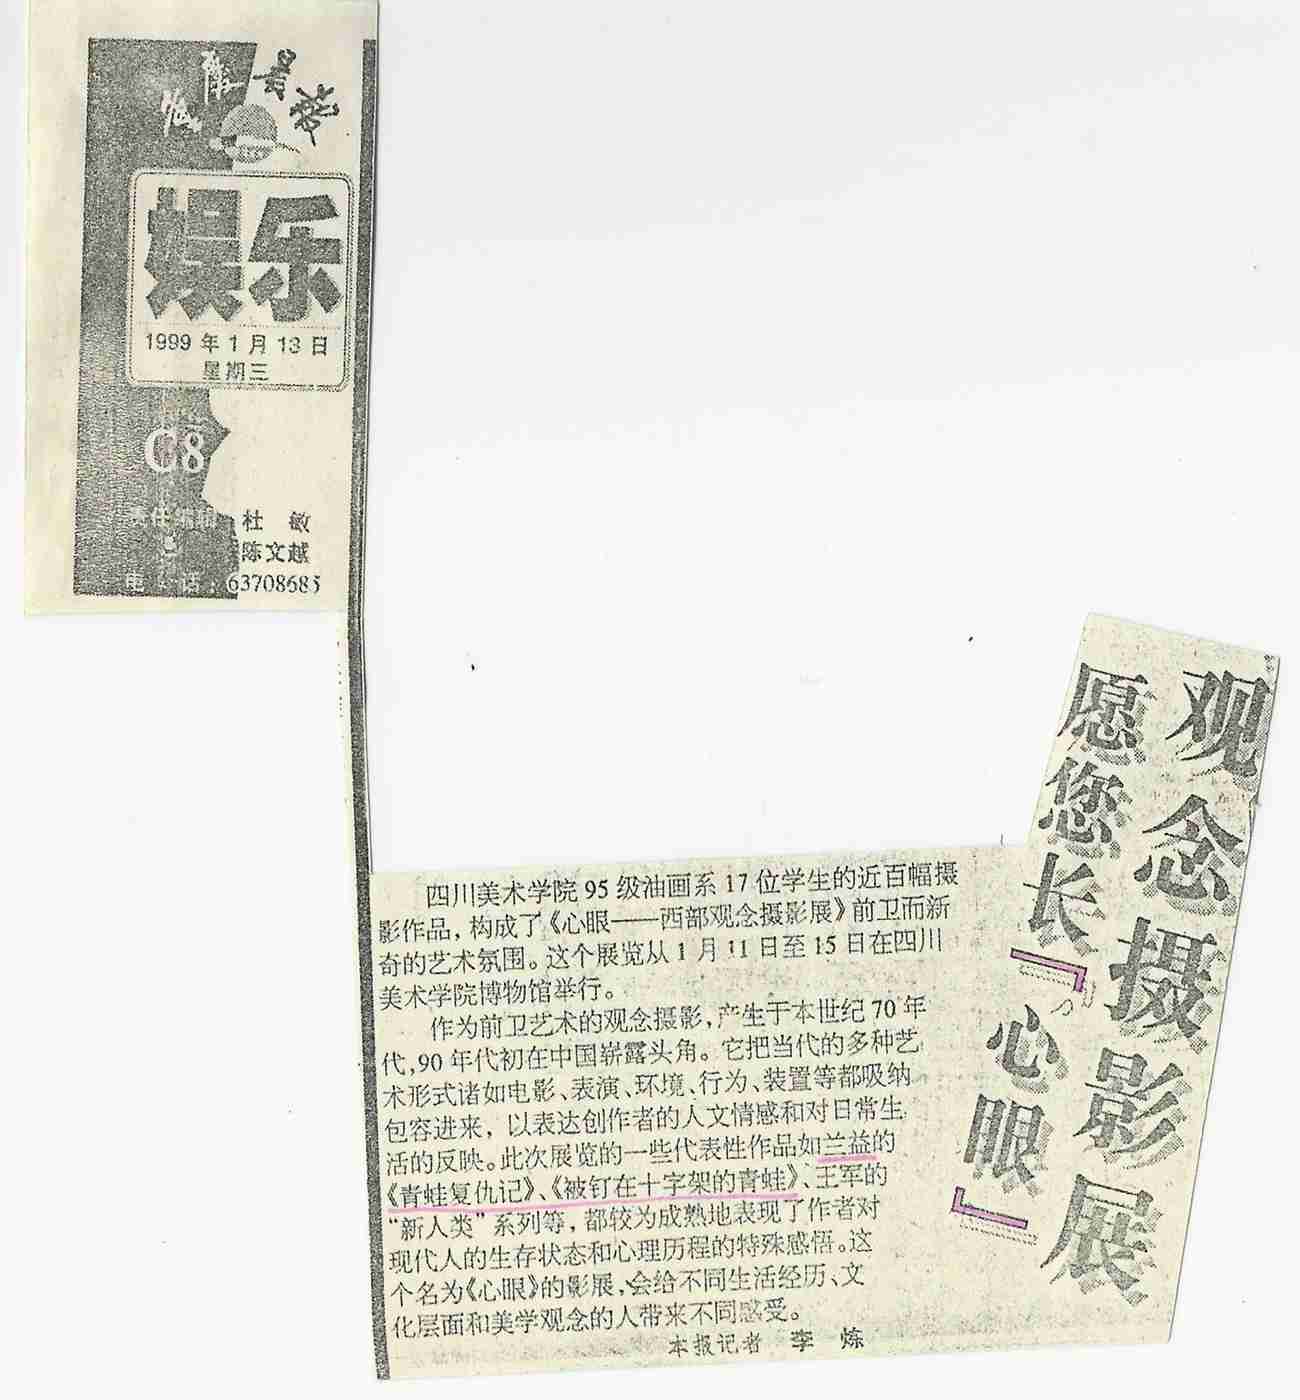 娱乐
1999年1月13日
星期三
C8
责任编辑 杜 敏
陈文越
电 话：63708685
观念摄影展
愿您长『心眼』
四川美术学院95级油画系17位学生的近百幅摄
影作品，构成了《心眼——西部观念摄影展》前卫而新
奇的艺术氛围。这个展览从1月11日至15日在四川
美术学院博物馆举行。
作为前卫艺术的观念摄影，产生于本世纪70年
代，90年代初在中国崭露头角。它把当代的多种艺
术形式诸如电影、表演、环境、行为、装置等都吸纳
包容进来，以表达创作者的人文情感和对日常生
活的反映。此次展览的一些代表性作品如兰益的
《青蛙复仇记》、《被钉在十字架的青蛙》、王军的
“新人类”系列等，都较为成熟地表现了作者对
现代人的生存状态和心理历程的特殊感悟。这
个名为《心眼》的影展，会给不同生活经历、文
化层面和美学观念的人带来不同感受。
本报记者 李 炼